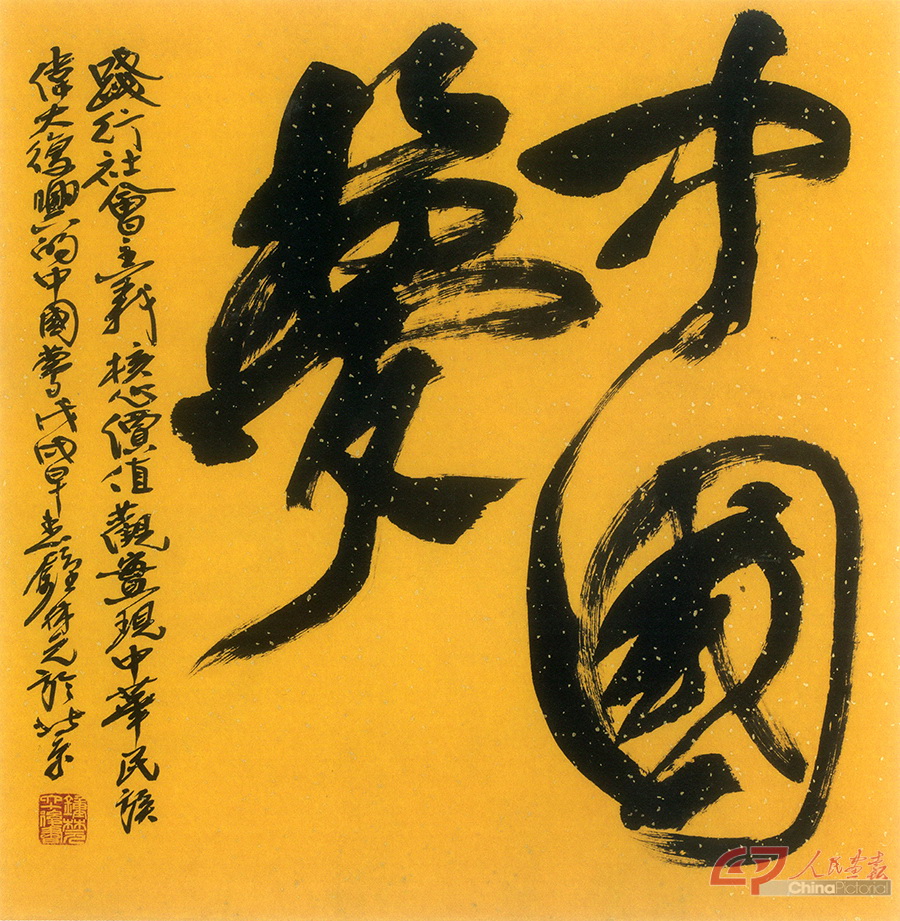 中國
夢
踐行社會主義核心價值觀實現中華民族
偉大復興的中國夢戊戌 於北京
人民画报
ChinaPictorial